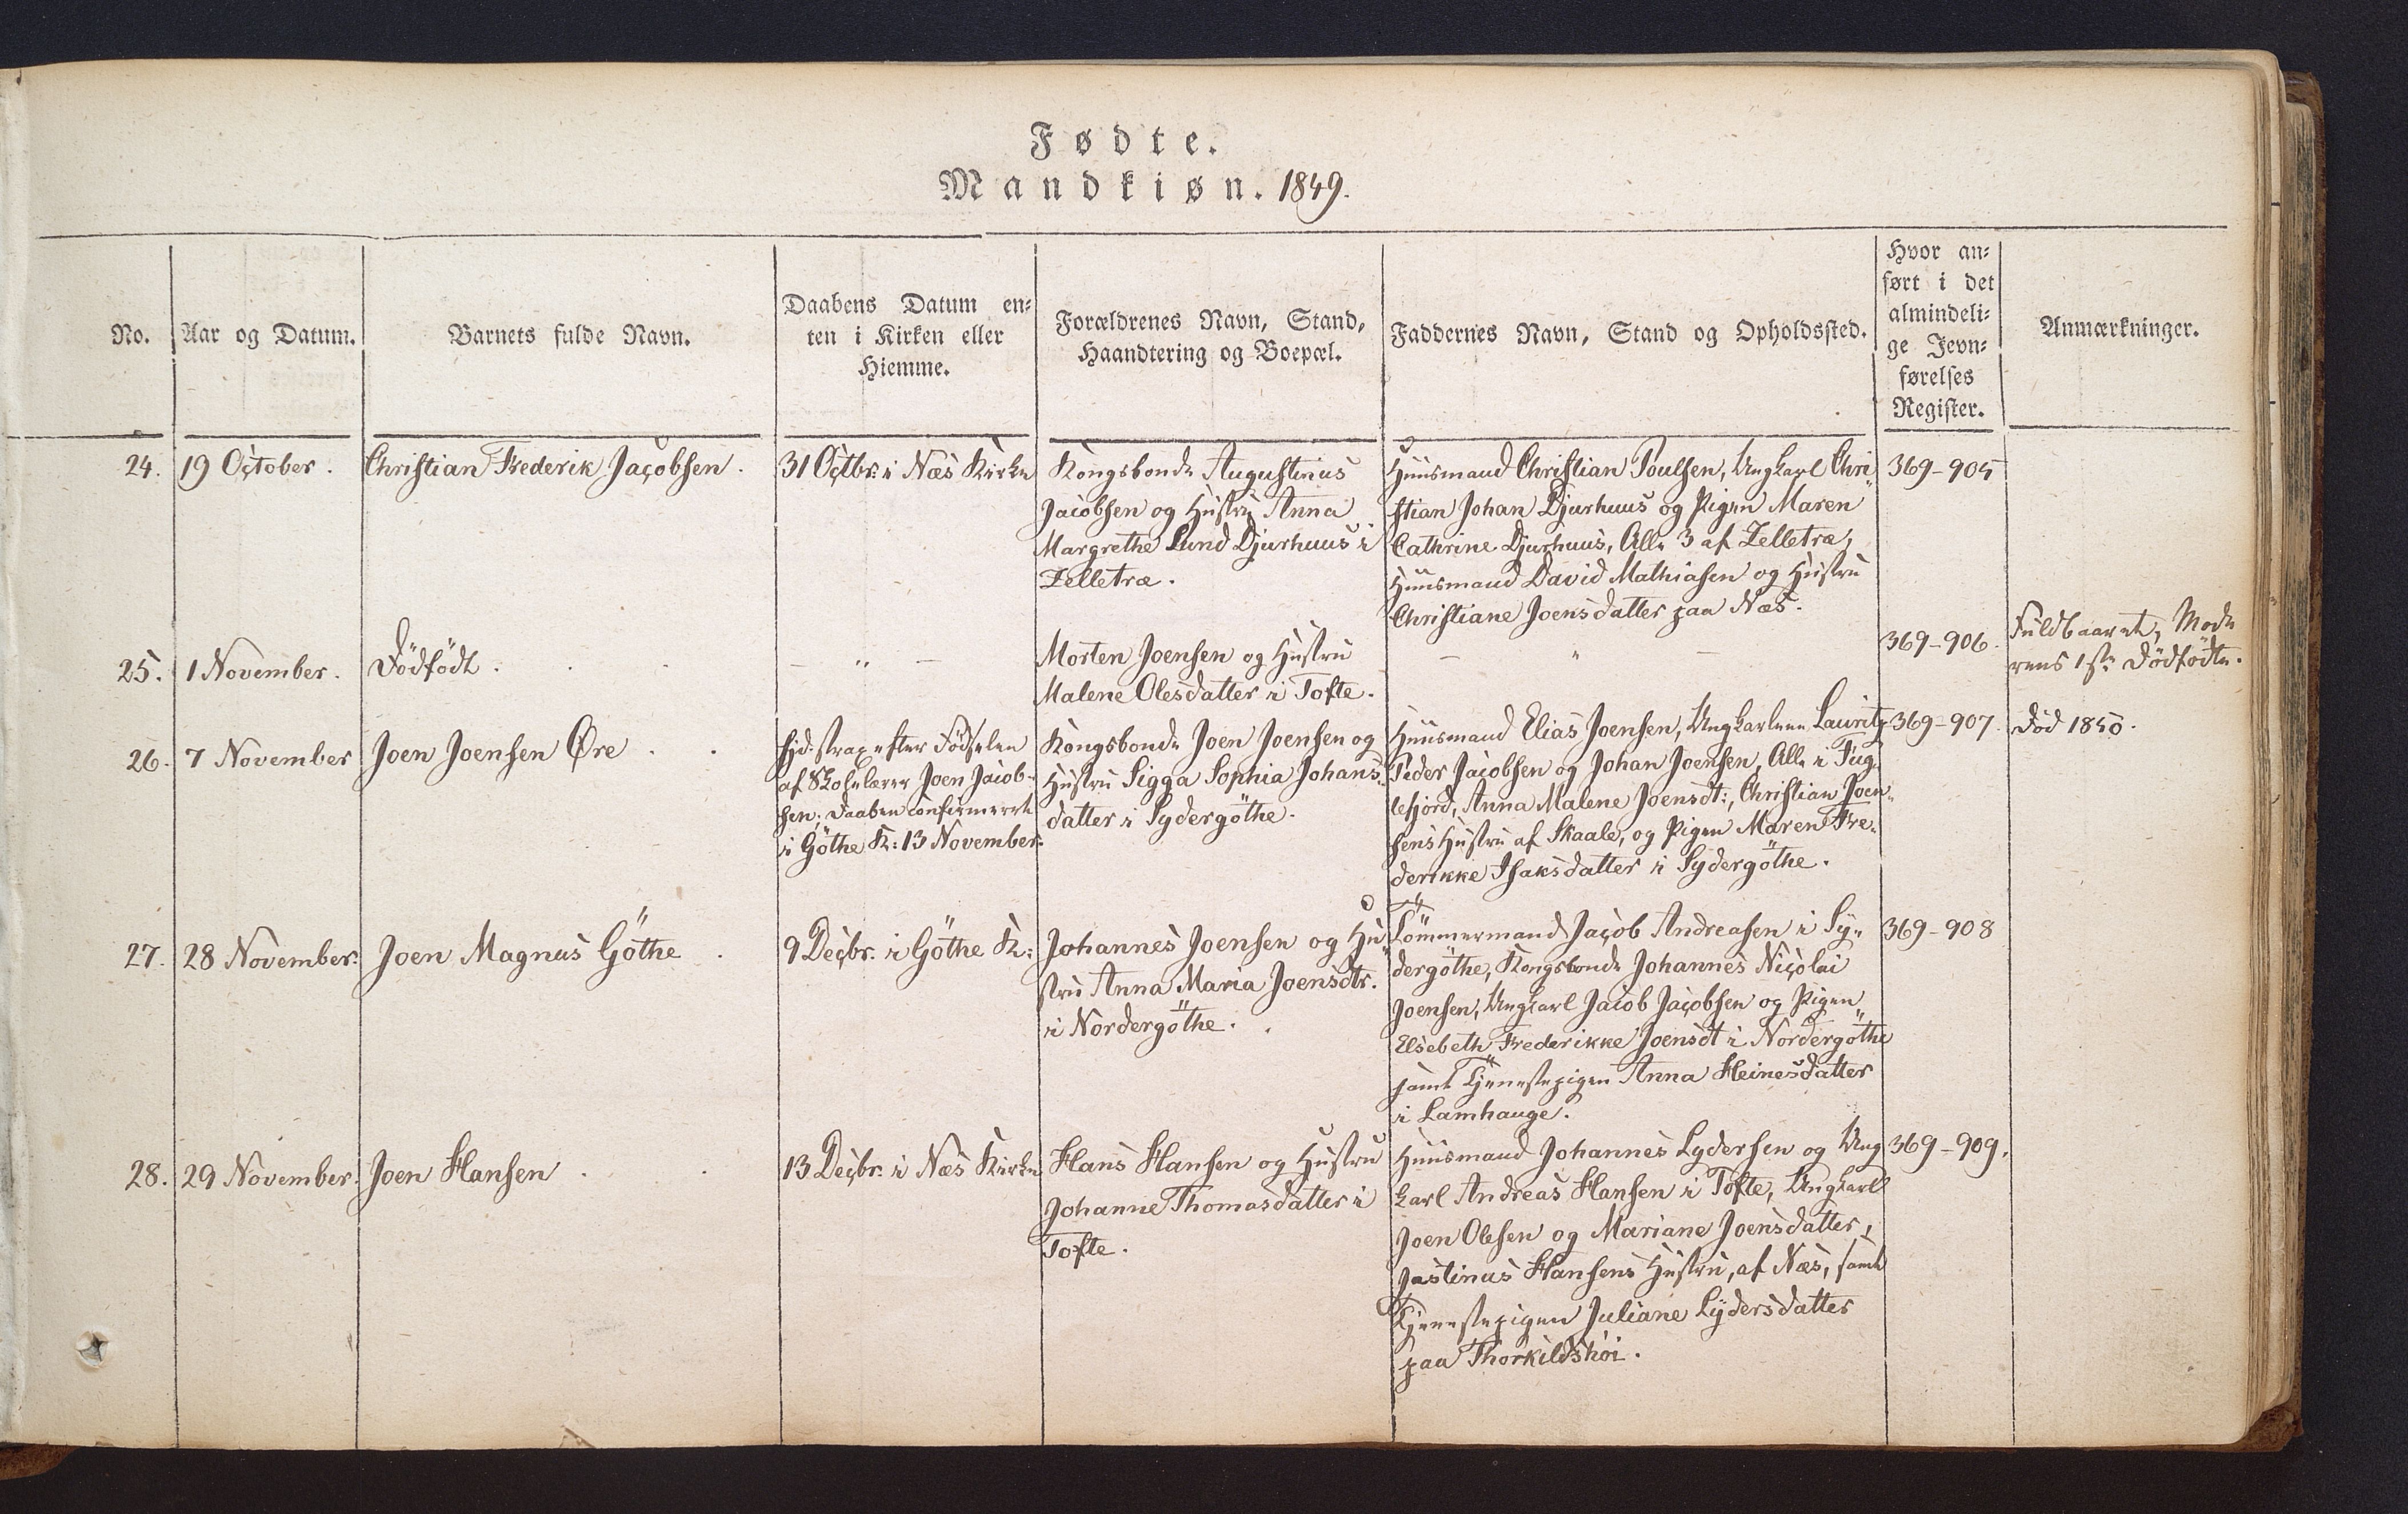 Fødte.
Mandkiøn. 1849.
No.
Aar og Datum.
Barnets fulde Navn.
Daabens Datum en-
ten i Kirken eller
Hiemme.
Forældrenes Navn, Stand,
Haandtering og Boepæl.
Faddernes Navn, Stand og Opholdssted.
Hvor an-
ført i det
almindeli-
ge Jevn-
førelses
Register.
Anmærkninger.
24.
19 October.
Christian Frederik Jacobsen.
31 Octbr. i Næs Kirke
Kongsbonde Augustinus
Jacobsen og Hustru Anna
Margrethe Lund Djurhuus i
Zelletræ.
Huusmand Christian Poulsen, Ungkarl Chri-
stian Johan Djurhuus og Pigen Maren
Cathrine Djurhuus, Alle 3 af Zelletræ,
Huusmand David Mathiasen og Hustru
Christiane Joensdatter paa Næs.
369-905
25.
1 November.
Dödfödt.
— " —
Morten Joensen og Hustru
Malene Olesdatter i Tofte.
— " —
369-906.
Fuldbaaret, Mode
rens 1ste Dödfödte.
26.
7 November
Joen Joensen Øre
Hjd. strax efter Födselen
af Skolelærer Joen Jacob-
sen; Daaben confirmeret
i Göthe K: 13 November.
Kongsbonde Joen Joensen og
Hustru Sigga Sophia Johans-
datter i Sydergöthe.
Huusmand Elias Joensen, Ungkarlene Lauritz
Peder Jacobsen og Johan Joensen, Alle i Fug-
lefjord, Anna Malene Joensdt:, Christian Joen-
sens Hustru af Skaale, og Pigen Maren Fre-
derikke Isaksdatter i Sydergöthe.
369-907.
Död 1850.
27.
28 November.
Joen Magnus Göthe
9 Decbr. i Göthe K:
Johannes Joensen og Hu-
stru Anna Maria Joensdtr.
i Nordergöthe.
Tömmermand Jacob Andreasen i Sy-
dergöthe, Kongsbonde Johannes Nicolai
Joensen, Ungkarl Jacob Jacobsen og Pigen
Elsebeth Frederikke Joensdt i Nordergöthe
samt Tjenestepigen Anna Heinesdatter
i Lamhauge.
369-908
28.
29 November.
Joen Hansen
13 Decbr. i Næs Kirke
Hans Hansen og Hustru
Johanne Thomasdatter i
Tofte.
Huusmand Johannes Lydersen og Ung
karl Andreas Hansen i Tofte, Ungkarl
Joen Olesen og Mariane Joensdatter,
Justinus Hansens Hustru, af Næs, samt
Tjenestepigen Juliane Lydersdatter
paa Thorkildshöi.
369-909.